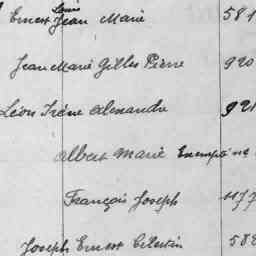 Louis
Ernest Jean Marie 581
Jean Marie Gilles Pierre 920
Léon Irène Alexandre 921
Albert Marie Exempté
François Joseph 1177
Joseph Ernest Célestin 588